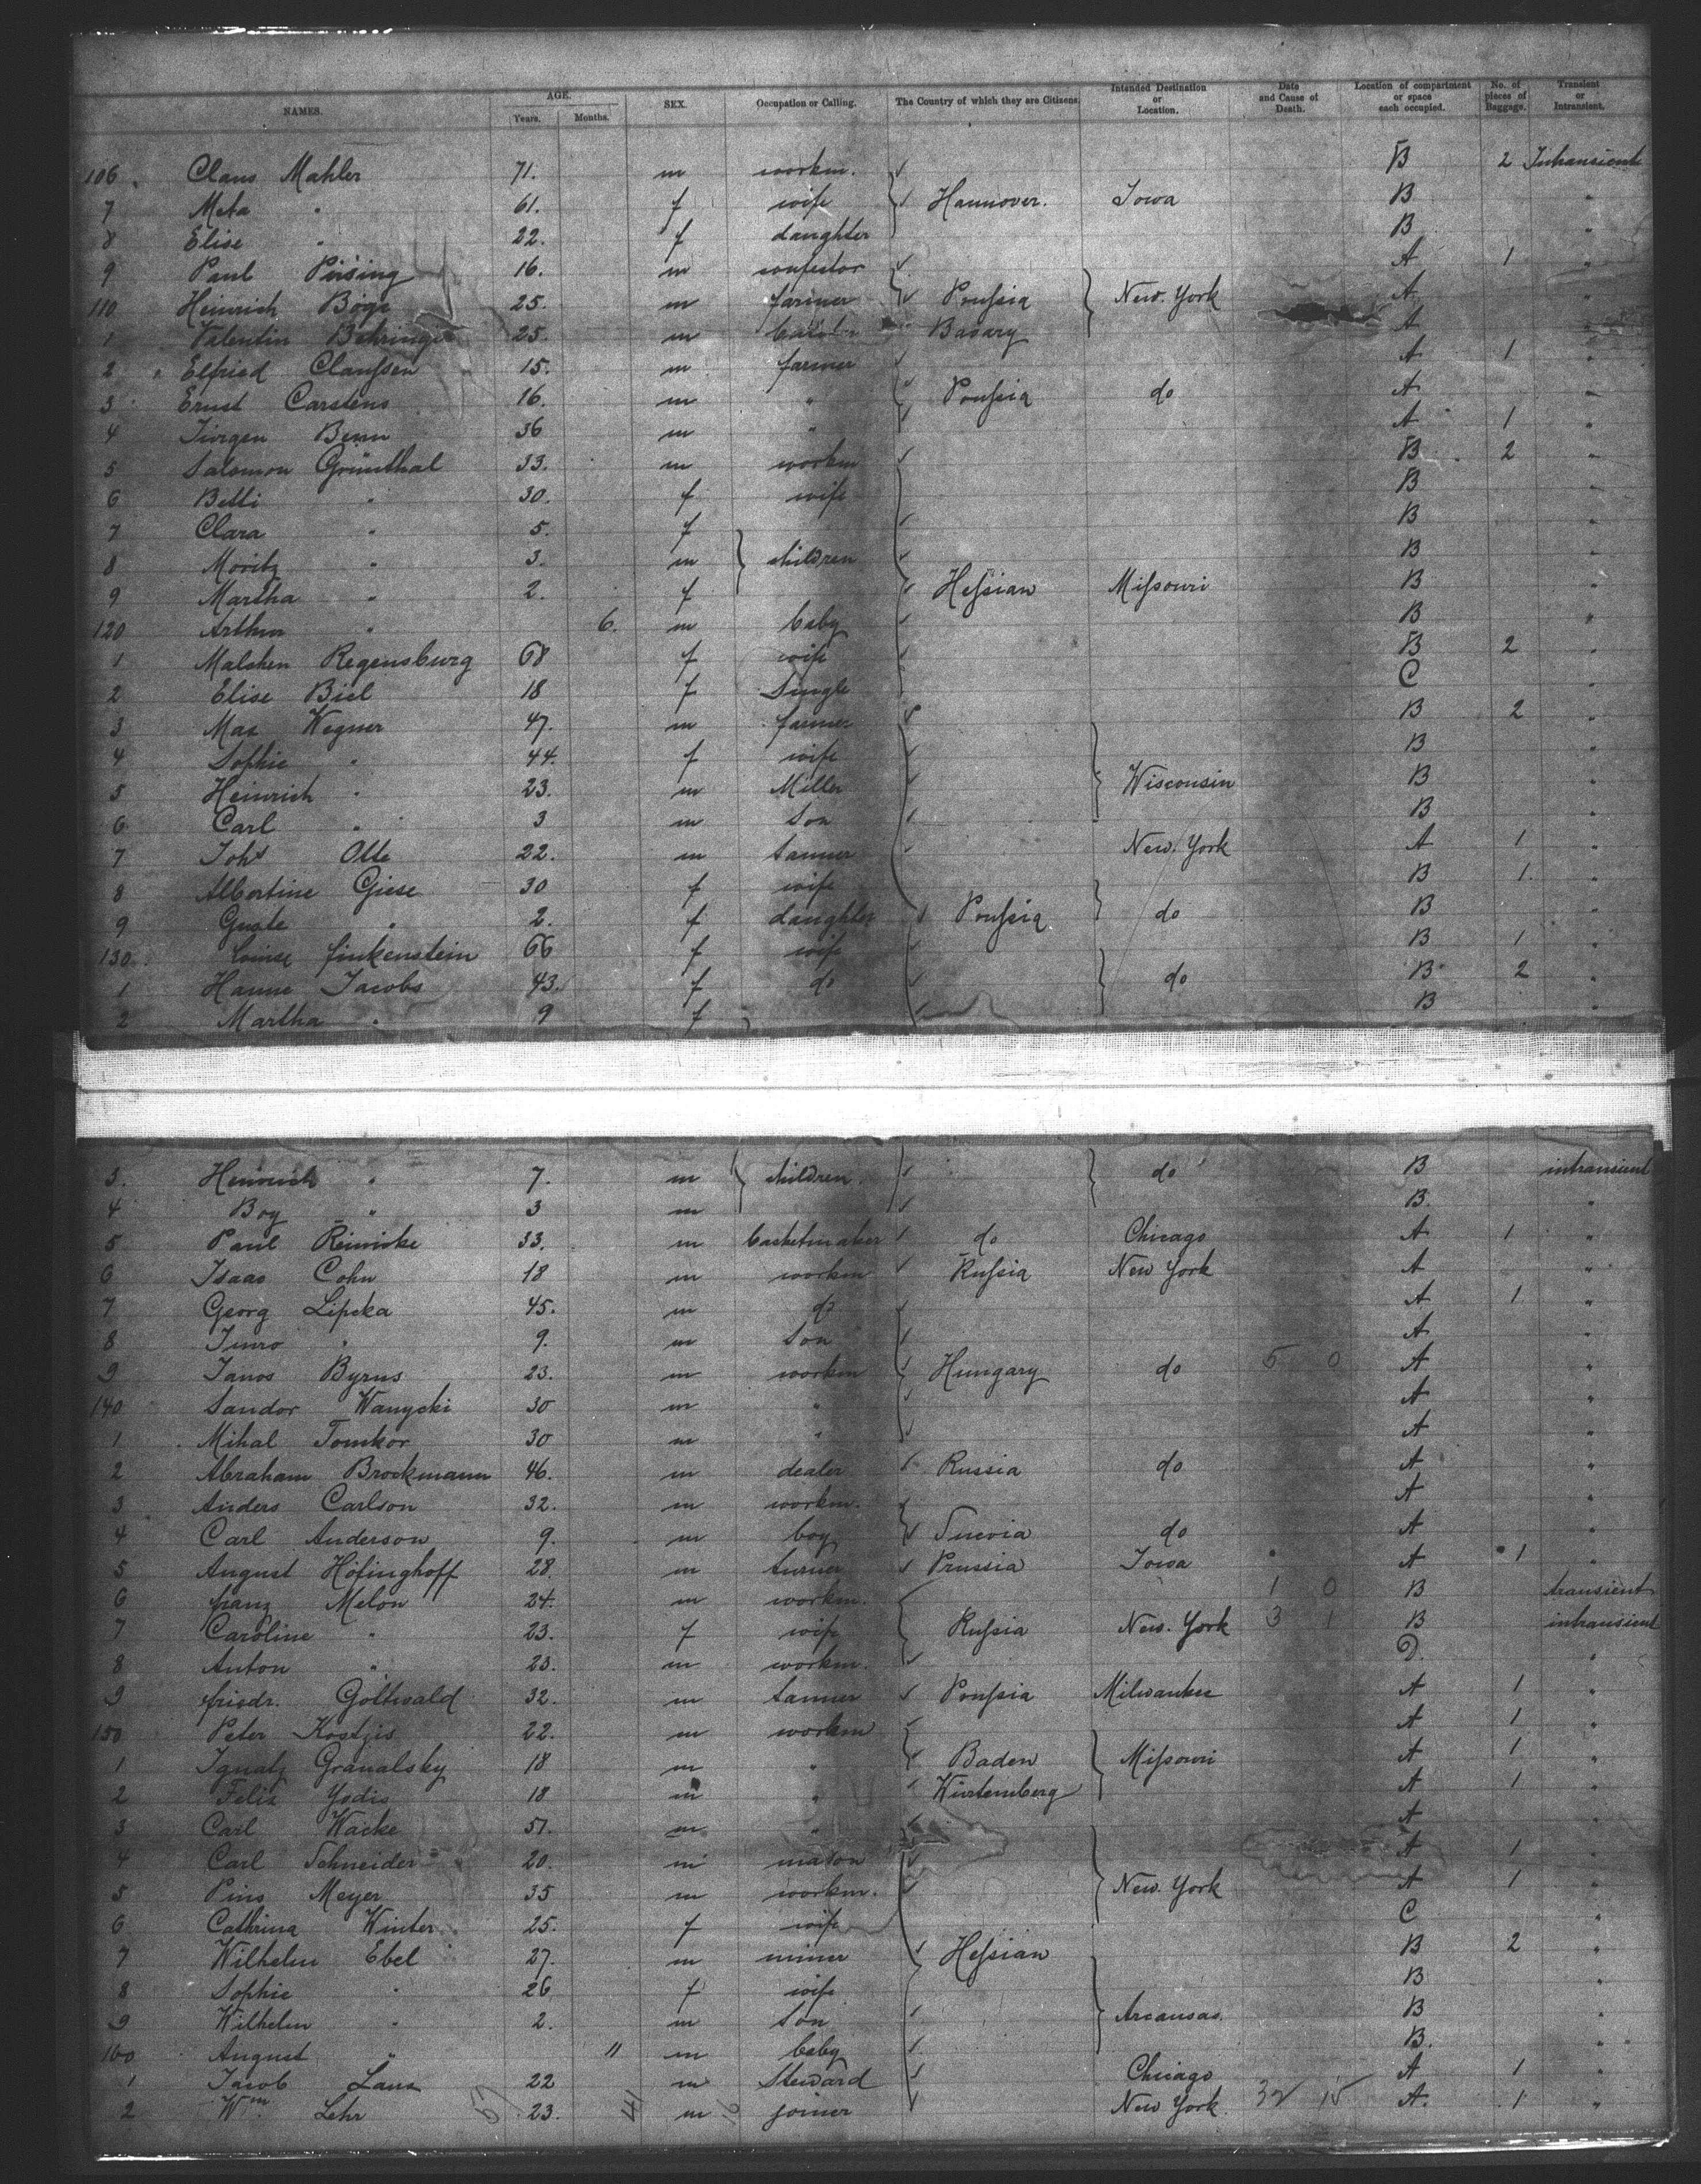 NAMES. AGE. Years. Months. SEX. Occupation or Calling. The Country of which they are Citizens. Intended Destination or Location. Date and Cause of Death. Location of compartment or space each occupied. No. of pieces of Baggage. Transient or Intransient.
106 Claus Mahler 71. m workm. B 2 Intransient
7 Meta " 61. f wife Hannover. Iowa B "
8 Elise " 22. f daughter B "
9 Paul Pirsing 16. m A 1 "
110 Heinrich Böge 25. m farmer Prussia New York A "
1 Valentin Behringer 25. m Bavary A "
2 Elfried Claussen 15. m farmer A 1 "
3 Ernst Carstens 16. m " Prussia do A "
4 Jürgen Benn 36 m " A 1 "
5 Salomon Grünthal 33. m workm B 2 "
6 Betti " 30. f wife B "
7 Clara " 5. f B "
8 Moritz " 3. m children B "
9 Martha " 2. f Hessian Missouri B "
120 Arthur " 6. m baby B "
1 Malchen Regensburg 68 f wife B 2 "
2 Elise Biel 18 f Single C "
3 Max Wegner 47. m farmer B 2 "
4 Sophie " 44. f wife B "
5 Heinrich " 23. m Miller Wisconsin B "
6 Carl " 3 m Son B "
7 Johs Otte 22. m tanner New York A 1 "
8 Albertine Giese 30 f wife B 1 "
9 Guste " 2. f daughter Prussia do B "
130. Louise Finkenstein 66 f wife B 1 "
1 Hanne Jacobs 43. f do do B 2 "
2 Martha " 9 f B "
3. Heinrich " 7. m children. do B intransient
4 Boy " 3 m B. "
5 Paul Reinicke 33. m basketmaker do Chicago A 1 "
6 Isaac Cohn 18 m workm Russia New York A "
7 Georg Lipcka 45. m do A 1 "
8 " 9. m Son A "
9 Janos Byrus 23. m workm Hungary do 5 0 A "
140 Sandor Wanycki 30 m " A "
1 Mihal Tomkor 30 m " A "
2 Abraham Brockmann 46. m dealer Russia do A "
3 Anders Carlson 32. m workm. A "
4 Carl Anderson 9. m boy Suecia do A "
5 August Höfinghoff 28. m turner Prussia Iowa A 1 "
6 Franz Melon 24. m workm. 1 0 B transient
7 Caroline " 23. f wife Russia New York 3 1 B intransient
8 Anton " 23. m workm. D. "
9 Friedr. Gottwald 32. m tanner Prussia Milwaukee A 1 "
150 Peter Kostjis 22. m workm A 1 "
1 Ignatz Granalsky 18 m " Baden Missouri A 1 "
2 Felix Yodis 18 m " Würtemberg A 1 "
3 Carl Wacke 51. m " A "
4 Carl Schneider 20. m mason A 1 "
5 Pius Meyer 35 m workm. New York A 1 "
6 Cathrina Winter 25. f wife C "
7 Wilhelm Ebel 27. m miner Hessian B 2 "
8 Sophie " 26 f wife B "
9 Wilhelm " 2. m Son Arcansas. B "
160 August " 11 m baby B. "
1 Jacob Lanz 22 m Steward Chicago A 1 "
2 Wm Lehr 57 23. 41 m 16 joiner New York. 32 15 A. 1 "